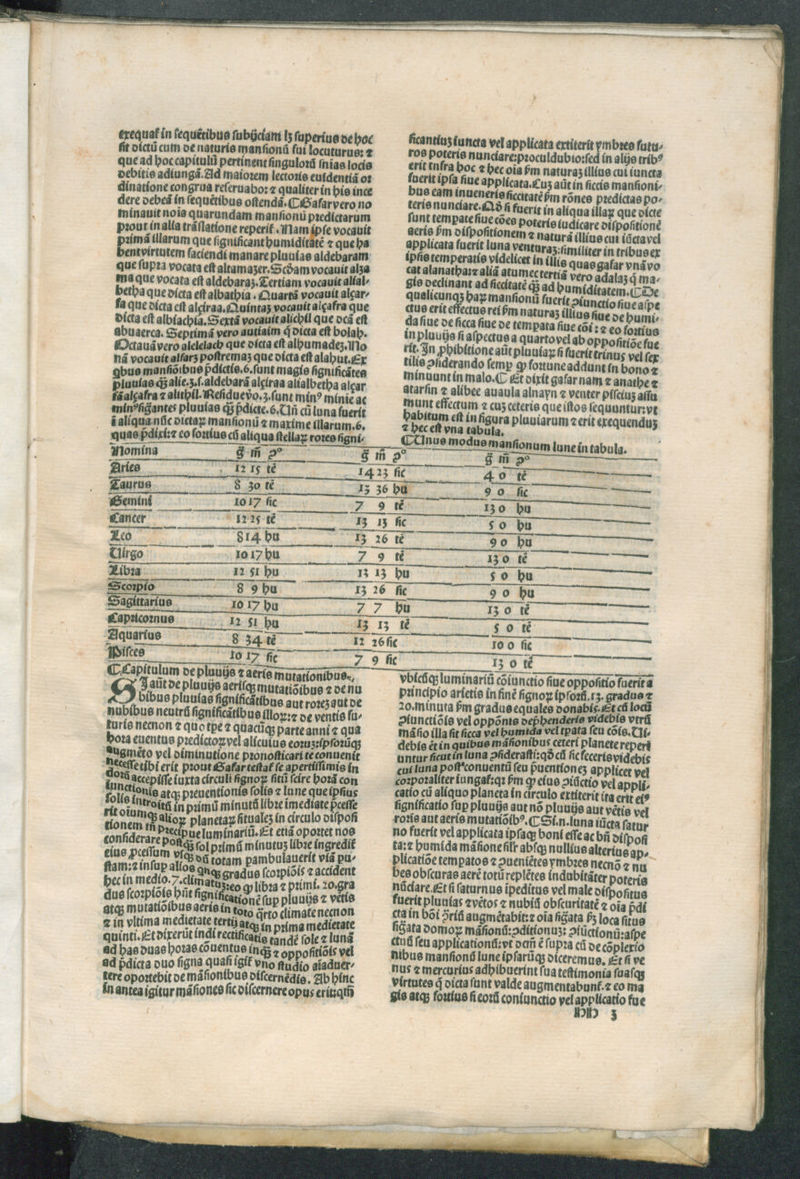 exequar̄ in sequētibus subijciam lꝫ superius de hoc
sit dictū cum de naturis mansionū fui locuturus: ⁊
que ad hoc capitulū pertinent singulorū snias locis
debitis adiungā. Ad maiorem lectoris euidentiā or
dinatione congrua reseruabo: ⁊ qualiter in his ince
dere debeā in sequētibus ostendā. ⸿ Gafar vero no
minauit noīa quarundam mansionū predictarum
prout in alia trāslatione reperit̄. Nam ipse vocauit
primā illarum que significant humiditātē ⁊ que ha
bent virtutem faciendi manare pluuias aldebaram
que supra vocata est altamazer. Scḋam vocauit alza
ma que vocata est aldebaraꝫ. Tertiam vocauit alial-
betha que dicta est albathia. Quartā vocauit alçar-
fa que dicta est alçiraa. Quintaꝫ vocauit alçafra que
dicta est albiachia. Sextā vocauit alichil que dcā est
abuaerca. Septimā vero autiaim q̄ dicta est bolah.
Octauā vero alelelach que dicta est alhumadeꝫ. No
nā vocauit alfarꝫ postremaꝫ que dicta est alahut. Ex
q̄bus mansiōibus p̄dictis .6. sunt magis significātes
pluuias q̄ꝫ alie. ꝫ.s. aldebarā alçiraa alialbetha alçar
fā alçafra ⁊ alithil. Residue vō .3. sunt minꝰ minie ac
minꝰ sigantes pluuias q̄ꝫ p̄dicte .6. Un̄ cū luna fuerit
ī aliqua nūc dictaꝝ mansionū ⁊ maxime illarum .6.
quas p̄dixi: ⁊ eo fortius cū aliqua stellaꝝ rores signi-
ficantiuꝫ iuncta vel applicata extiterit ymbres futu-
ros poteris nunciare: proculdubio: sed in alijs tribꝰ
erit infra hoc ⁊ hec oīa ꝑm naturaꝫ illius cui iuncta
fuerit ipsa siue applicata. Cuꝫ aūt in siccis mansioni-
bus eam inueneris siccitatē ꝑm rōnes predictas po-
teris nunciare. Qđ si fuerit in aliqua illaꝝ que dicte
sunt tempate siue cōes poteris iudicare dispositionē
aeris ꝑm dispositionem ⁊ naturā illius cui iūcta vel
applicata fuerit luna venturaꝫ: similiter in tribus ex
ipsis temperatis videlicet in illis quas gafar vnā vo
cat alanathaꝛ aliā atumec tertiā vero adalaꝫ q̄ ma-
gis declinant ad siccitatē q̄ꝫ ad humiditatem. ⸿ De
qualicunqꝫ haꝝ mansionū fuerit ꝯiunctio siue aspe
ctus erit effectus rei ꝑm naturaꝫ illius siue de humi-
da siue de sicca siue de tempata siue cōi: ⁊ eo fortius
in pluuijs si aspectus a quarto vel ab oppositiōe fue
rit. In ꝓhibitione aūt pluuiaꝝ si fuerit trinus vel sex
tilis ꝯsiderando semp q̄ fortune addunt in bono ⁊
minuunt in malo. ⸿ Et dixit gafar nam ⁊ anathe ⁊
atarfin ⁊ alibee auaula alnayn ⁊ venter pisciuꝫ assu
munt effectum ⁊ cuꝫ ceteris que istos sequuntur: vt
habitum est in figura pluuiarum ⁊ erit exequenduꝫ
⁊ hec est vna tabula.
⸿ Unus modus mansionum lune in tabula.
Nomina ḡ m̄ ꝯꝰ ḡ m̄ ꝯꝰ ḡ m̄ ꝯꝰ
Aries 12 15 tē 14 23 sic 4 0 tē
Taurus 8 30 tē 13 36 hu 9 0 sic
Gemini 10 17 sic 7 9 tē 13 0 hu
Cancer 12 25 tē 13 13 sic 5 0 hu
Leo 8 14 hu 13 26 tē 9 0 hu
Uirgo 10 17 hu 7 9 tē 13 0 tē
Libra 12 51 hu 13 13 hu 5 0 hu
Scorpio 8 9 hu 13 26 sic 9 0 hu
Sagittarius 10 17 hu 7 7 hu 13 0 tē
Capricornus 12 51 hu 13 13 tē 5 0 tē
Aquarius 8 34 tē 12 26 sic 10 0 sic
Pisces 10 17 sic 7 9 sic 13 0 tē
⸿ Capitulum de pluuijs ⁊ aeris mutationibus.
SI aūt de pluuijs aerisqꝫ mutatiōibus ⁊ de nu
bibus pluuias significātibus aut roreꝫ aut de
nubibus neutrū significātibus illoꝝ: ⁊ de ventis fu-
turis necnon ⁊ quo tp̄e ⁊ quacūqꝫ parte anni ⁊ qua
hora euentus predictoꝝ vel alicuius eorū: ipsorūqꝫ
augmēto vel diminutione pronosticari te conuenit
necesse tibi erit prout Gafar testat̄ se apertissimis in
dorū accepisse iuxta circuli signoꝝ sitū scire horā con
iunctionis atqꝫ preuentionis solis ⁊ lune que ipsius
solis introitū in primū minutū libre imediate p̄cesse
rit oīumqꝫ alioꝝ planetaꝝ situaleꝫ in circulo disposi
tionem m̄ precipue luminariū. Et etiā oportet nos
considerare postqꝫ sol primū minutuꝫ libre ingredit̄
eius ꝓcessum vsqꝫ dū totam pambulauerit viā pu-
stam: ⁊ insup alios qnqꝫ gradus scorpiōis ⁊ accident
hec in medio .7. climatuꝫ: eo q̄ libra ⁊ primi .20. gra
dus scorpiōis hn̄t significationē sup pluuijs ⁊ vētis
atqꝫ mutatiōibus aeris in toto q̄rto climate necnon
⁊ in vltima medietate tertij atqꝫ in prima medietate
quinti. Et dixerūt indi rectificatis tandē sole ⁊ lunā
ad has duas horas cōuentus inqꝫ ⁊ oppositiōis vel
ad p̄dicta duo signa quasi igit̄ vno studio aīaduer-
tere oportebit de māsionibus discernēdis. Ab hinc
in antea igitur māsiones sic discernere opus erit: qm̄
vbicūqꝫ luminariū cōiunctio siue oppositio fuerit a
principio arietis in finē signoꝝ ipsorū .13. gradus ⁊
20. minuta ꝑm gradus equales donabis. Et cū locū
ꝯiunctiōis vel oppōnis dephenderis videbis vtrū
māsio illa sit sicca vel humida vel tpata seu cōis. Ui-
debis ēt in quibus māsionibus ceteri planete reperi
untur sicut in luna ꝯsiderasti: qđ cū sic feceris videbis
cui luna postꝰ conuentū seu p̄uentioneꝫ applicet vel
corporaliter iungat̄: qꝛ ꝑm q̄ eius ꝯiūctio vel appli-
catio cū aliquo planeta in circulo extiterit ita erit eiꝰ
significatio sup pluuijs aut nō pluuijs aut vētis vel
roris aut aeris mutatiōibꝰ. ⸿ Si .n. luna iūcta satur
no fuerit vel applicata ipsaqꝫ boni esse ac bn̄ disposi
ta: ⁊ humida māsione sil̄r absqꝫ nullius alterius ap-
plicatiōe tempatos ⁊ ꝯuenietes ymbres necnō ⁊ nu
bes obscuras aerē totū replētes indubitāter poteris
nūciare. Et si saturnus ipeditus vel male dispositus
fuerit pluuias ⁊ vētos ⁊ nubiū obscuritatē ⁊ oīa p̄di
cta in bōi ꝯ̄riū augmētabit: ⁊ oīa sigata ꝑꝫ loca situs
sigata domoꝝ māsionū: ꝯditionuꝫ: ꝯiūctionū: aspe
ctuū seu applicationū: vt dcm̄ ē supra cū de cōplexio
nibus mansionū lune ipsarūqꝫ diceremus. Et si ve
nus ⁊ mercurius adhibuerint sua testimonia suasqꝫ
virtutes q̄ dicta sunt valde augmentabunt̄. ⁊ eo ma
gis atqꝫ fortius si eorū coniunctio vel applicatio fue
NN 3